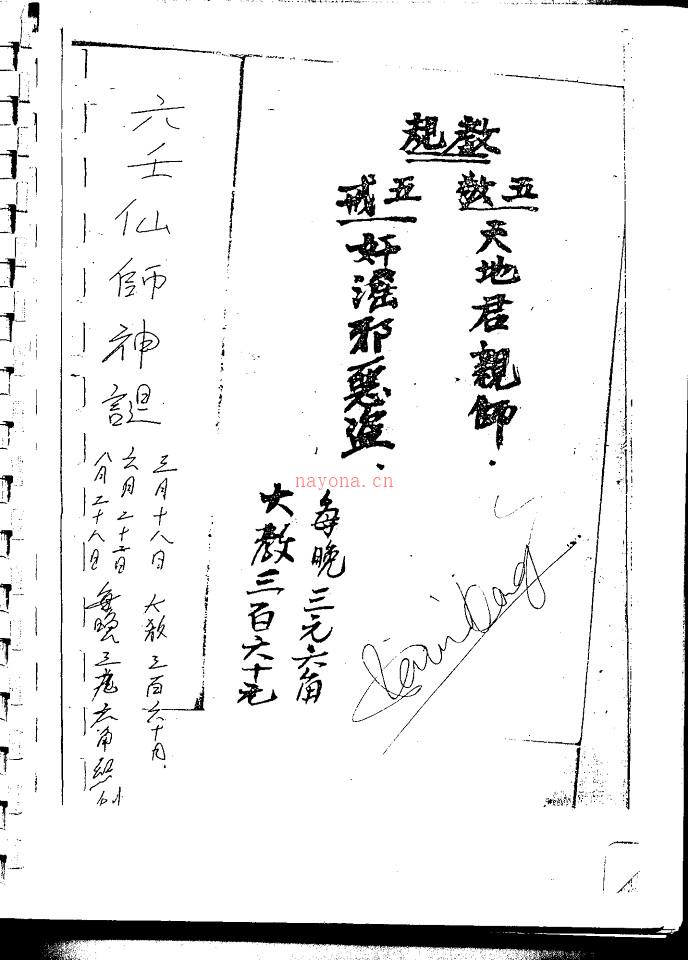 教規
五教 天地君親師.
五戒 奸淫邪惡盜.
每晚三元六角
大教三百六十元
六壬仙師神誕
三月十八日 大教三百六十月.
六月二十二日
八月二十八日 每晚三元六角
nayona.cn